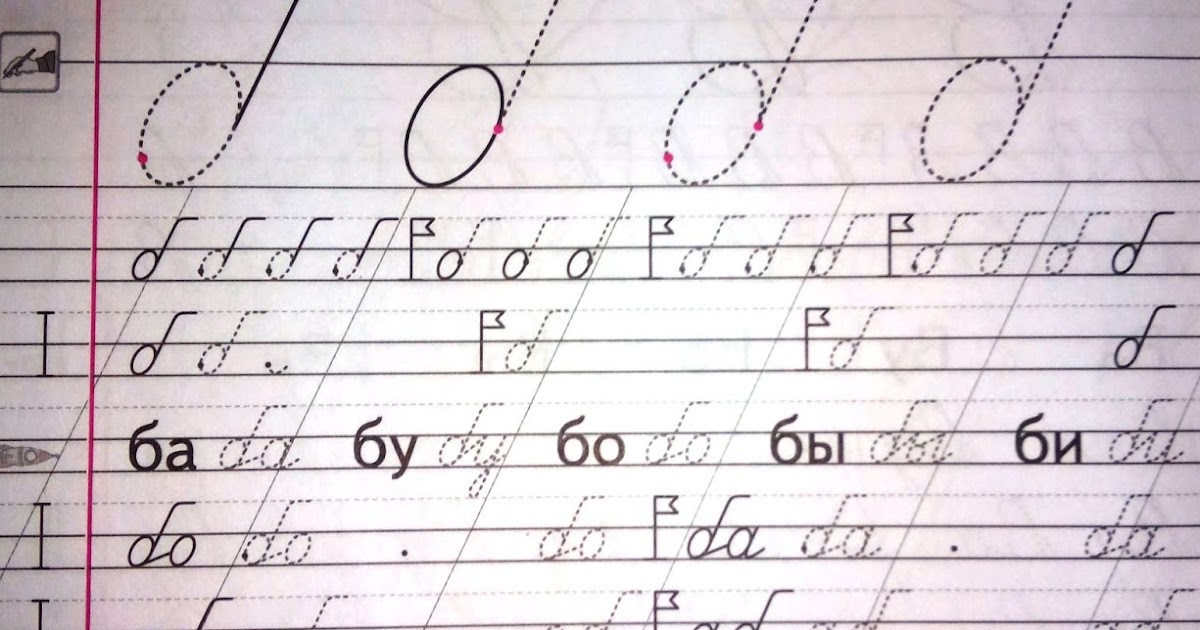 б б б б б б б б б б б б б б
б б б б б
ба ба бу бу бо бо бы бы би би
бо бо бо ба ба ба